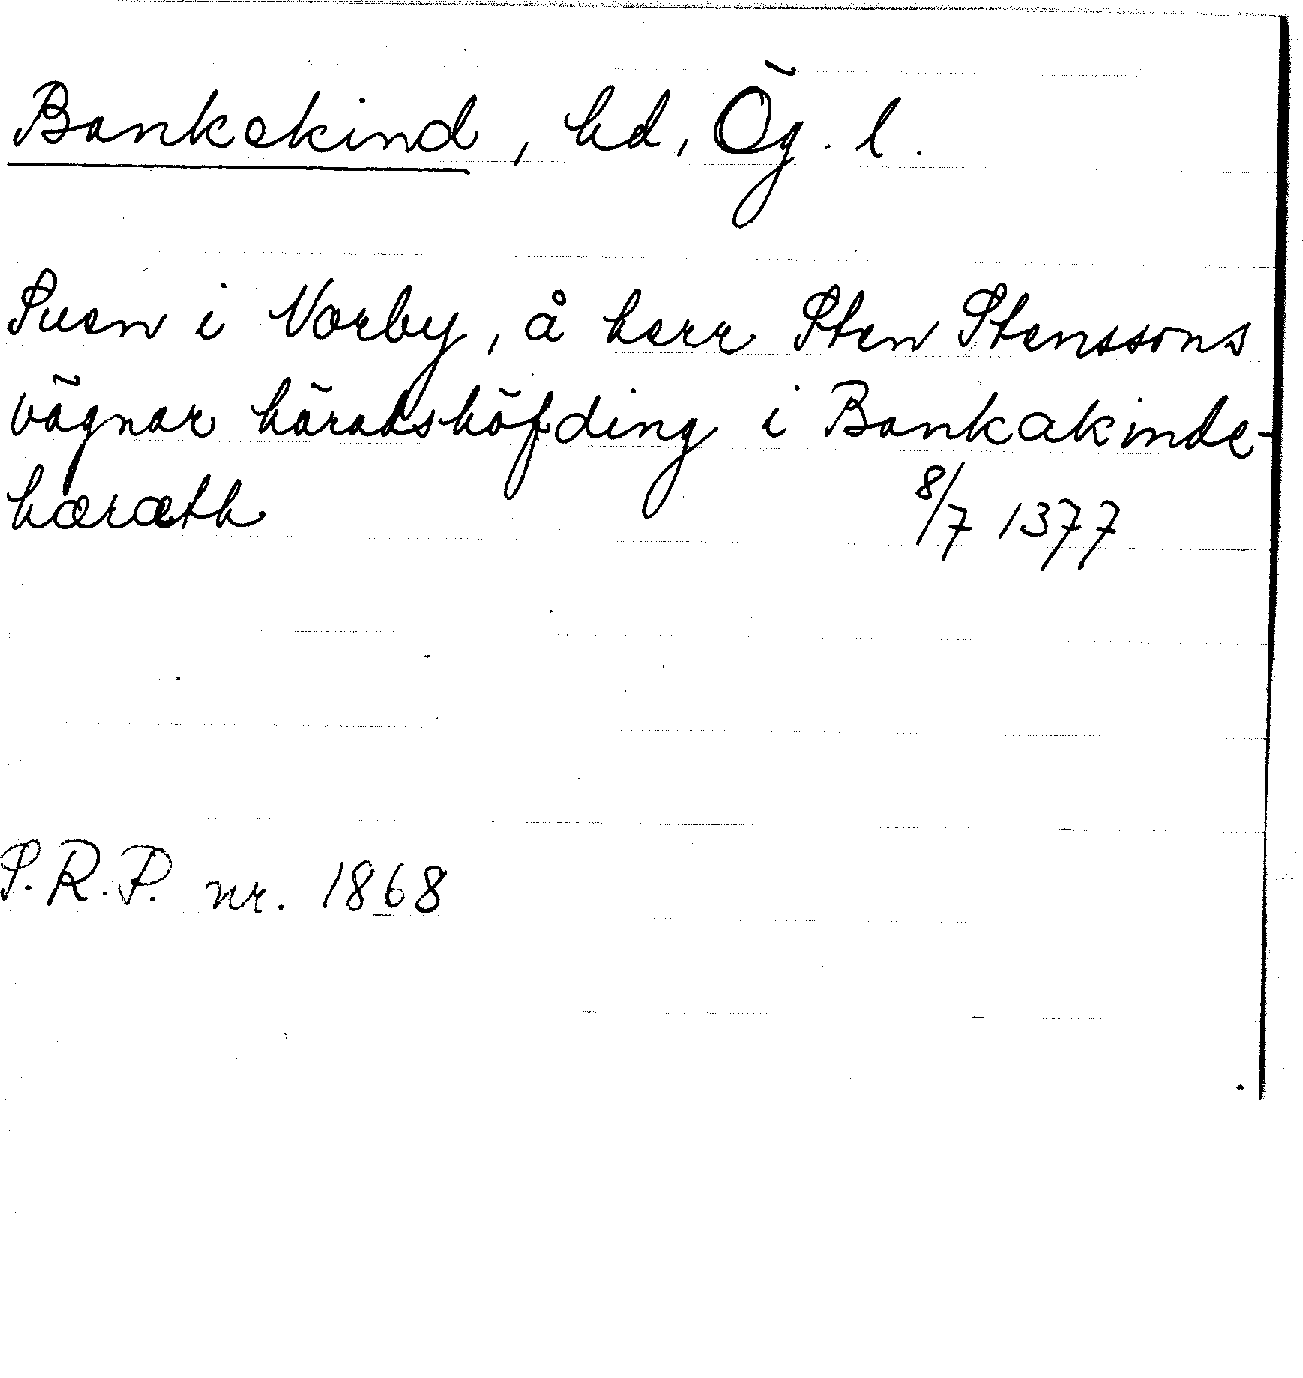 Bankekind, hd, Ög. l.
Suen i Norby, å herr Sten Stenssons
vägnar häradshöfding i Bankakinde-
hæræth 8/7 1377
S.R.P. nr. 1868